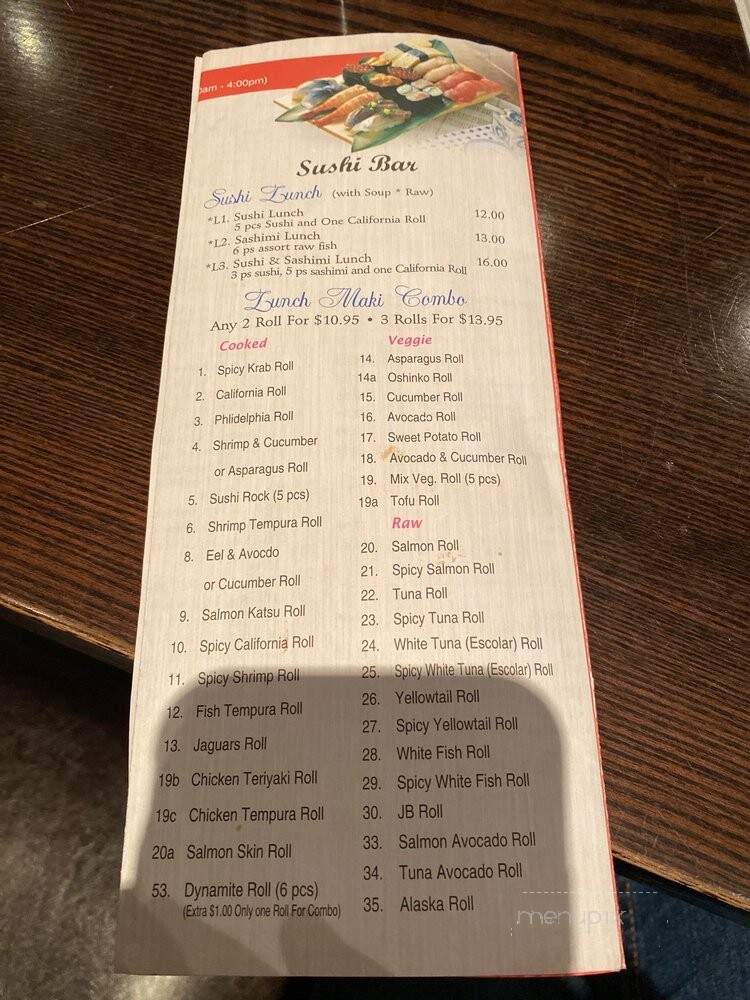 0am - 4:00pm)
Sushi Bar
Sushi Lunch (with Soup * Raw)
*L1. Sushi Lunch 12.00
5 pcs Sushi and One California Roll
*L2. Sashimi Lunch 13.00
6 ps assort raw fish
*L3. Sushi & Sashimi Lunch 16.00
3 ps sushi, 5 ps sashimi and one California Roll
Lunch Maki Combo
Any 2 Roll For $10.95 • 3 Rolls For $13.95
Cooked
1. Spicy Krab Roll
2. California Roll
3. Phlidelphia Roll
4. Shrimp & Cucumber
or Asparagus Roll
5. Sushi Rock (5 pcs)
6. Shrimp Tempura Roll
8. Eel & Avocdo
or Cucumber Roll
9. Salmon Katsu Roll
10. Spicy California Roll
11. Spicy Shrimp Roll
12. Fish Tempura Roll
13. Jaguars Roll
19b Chicken Teriyaki Roll
19c Chicken Tempura Roll
20a Salmon Skin Roll
53. Dynamite Roll (6 pcs)
(Extra $1.00 Only one Roll For Combo)
Veggie
14. Asparagus Roll
14a Oshinko Roll
15. Cucumber Roll
16. Avocado Roll
17. Sweet Potato Roll
18. Avocado & Cucumber Roll
19. Mix Veg. Roll (5 pcs)
19a Tofu Roll
Raw
20. Salmon Roll
21. Spicy Salmon Roll
22. Tuna Roll
23. Spicy Tuna Roll
24. White Tuna (Escolar) Roll
25. Spicy White Tuna (Escolar) Roll
26. Yellowtail Roll
27. Spicy Yellowtail Roll
28. White Fish Roll
29. Spicy White Fish Roll
30. JB Roll
33. Salmon Avocado Roll
34. Tuna Avocado Roll
35. Alaska Roll
menupix